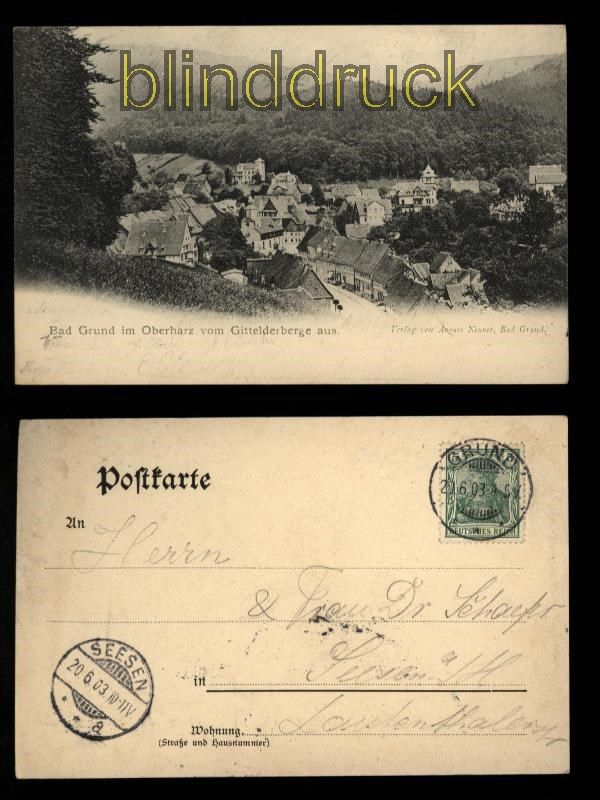 blinddruck
Bad Grund im Oberharz vom Gittelderberge aus.
Verlag von August Neuner, Bad Grund.
Postkarte
GRUND
20.6.03
DEUTSCHES REICH
An
Herrn
& Frau Dr Schaefer
in Seesen a/H
SEESEN
20.6.03.10-11V
* * a
Wohnung
(Straße und Hausnummer)
Lautenthaler